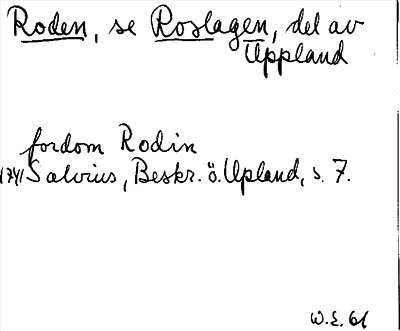 Roden, se Roslagen, del av
Uppland
fordom Rodin
1741 Salvius, Beskr. ö. Upland, s. 7.
W.E. 61